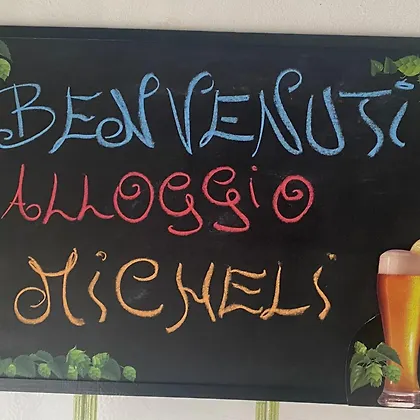 BENVENUTI
ALLOGGIO
MICHELI